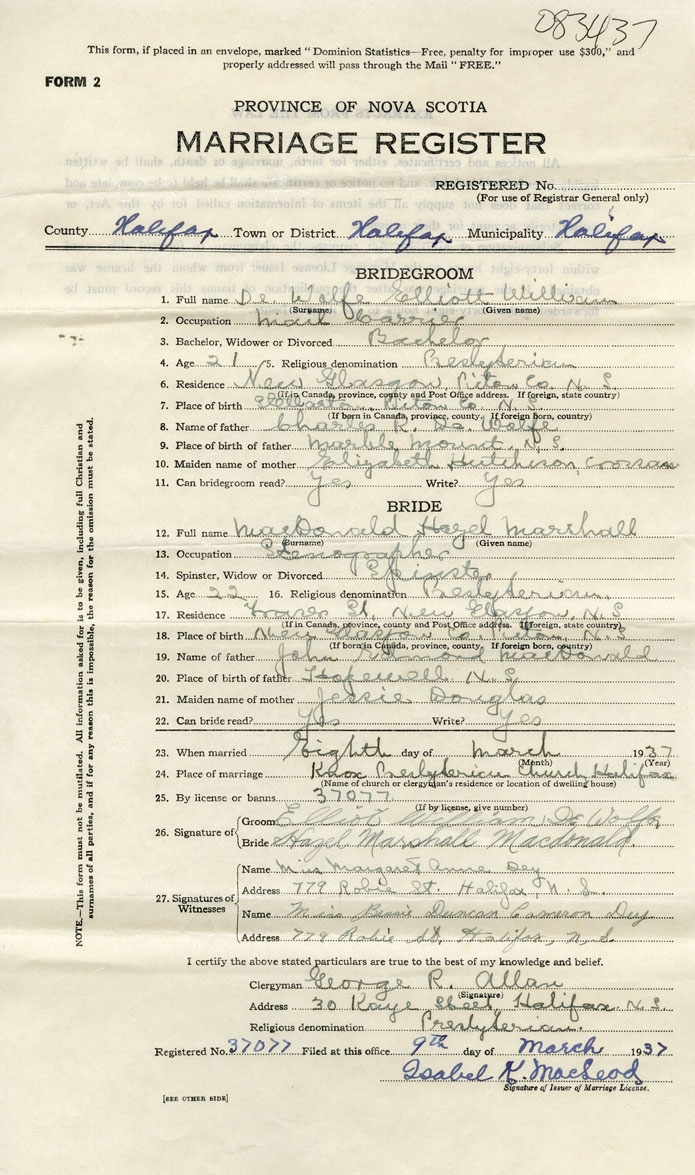 083437
This form, if placed in an envelope, marked "Dominion Statistics—Free, penalty for improper use $300," and
properly addressed will pass through the Mail "FREE."
FORM 2
PROVINCE OF NOVA SCOTIA
MARRIAGE REGISTER
REGISTERED No.
(For use of Registrar General only)
County Halifax Town or District Halifax Municipality Halifax
BRIDEGROOM
1. Full name De Wolfe Elliott William
(Surname) (Given name)
2. Occupation Mail Carrier
3. Bachelor, Widower or Divorced Bachelor
4. Age 21 5. Religious denomination Presbyterian
6. Residence New Glasgow Pictou Co. N. S.
(If in Canada, province, county and Post Office address. If foreign, state country)
7. Place of birth Pictou Co. N. S.
(If born in Canada, province, county. If foreign born, country)
8. Name of father Charles R. De Wolfe
9. Place of birth of father Marble Mount, N. S.
10. Maiden name of mother Elizabeth Hutchison
11. Can bridegroom read? Yes Write? Yes
BRIDE
12. Full name MacDonald Hazel Marshall
(Surname) (Given name)
13. Occupation Stenographer
14. Spinster, Widow or Divorced Spinster
15. Age 22 16. Religious denomination Presbyterian
17. Residence Fraser St. New Glasgow, N. S.
(If in Canada, province, county and Post Office address. If foreign, state country)
18. Place of birth New Glasgow Co. Pictou, N. S.
(If born in Canada, province, county. If foreign born, country)
19. Name of father John Edmond MacDonald
20. Place of birth of father Hopewell N. S.
21. Maiden name of mother Jessie Douglas
22. Can bride read? Yes Write? Yes
23. When married Eighth day of March 1937
(Month) (Year)
24. Place of marriage Knox Presbyterian Church Halifax
(Name of church or clergyman's residence or location of dwelling house)
25. By license or banns 37077
(If by license, give number)
26. Signature of Groom Elliott William De Wolfe
Bride Hazel Marshall Macdonald
27. Signatures of Witnesses
Name Miss Margaret Anne Dey
Address 779 Robie St. Halifax, N. S.
Name Miss Bessie Duncan Cameron Dey
Address 779 Robie St, Halifax, N. S.
I certify the above stated particulars are true to the best of my knowledge and belief.
Clergyman George R. Allan
(Signature)
Address 30 Kaye Street, Halifax N. S.
Religious denomination Presbyterian.
Registered No. 37077 Filed at this office 9th day of March 1937
Isabel K. MacLeod
Signature of Issuer of Marriage License.
[SEE OTHER SIDE]
NOTE.—This form must not be mutilated. All information asked for is to be given, including full Christian and
surnames of all parties, and if for any reason this is impossible, the reason for the omission must be stated.